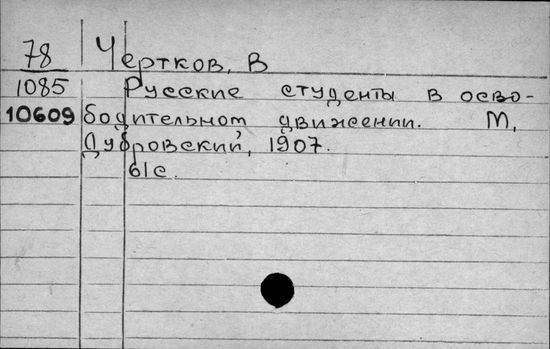 78 Чертков, В
1085 Русские студенты в осво-
10609 бодительном движении. М,
Дубровский, 1907.
61с.